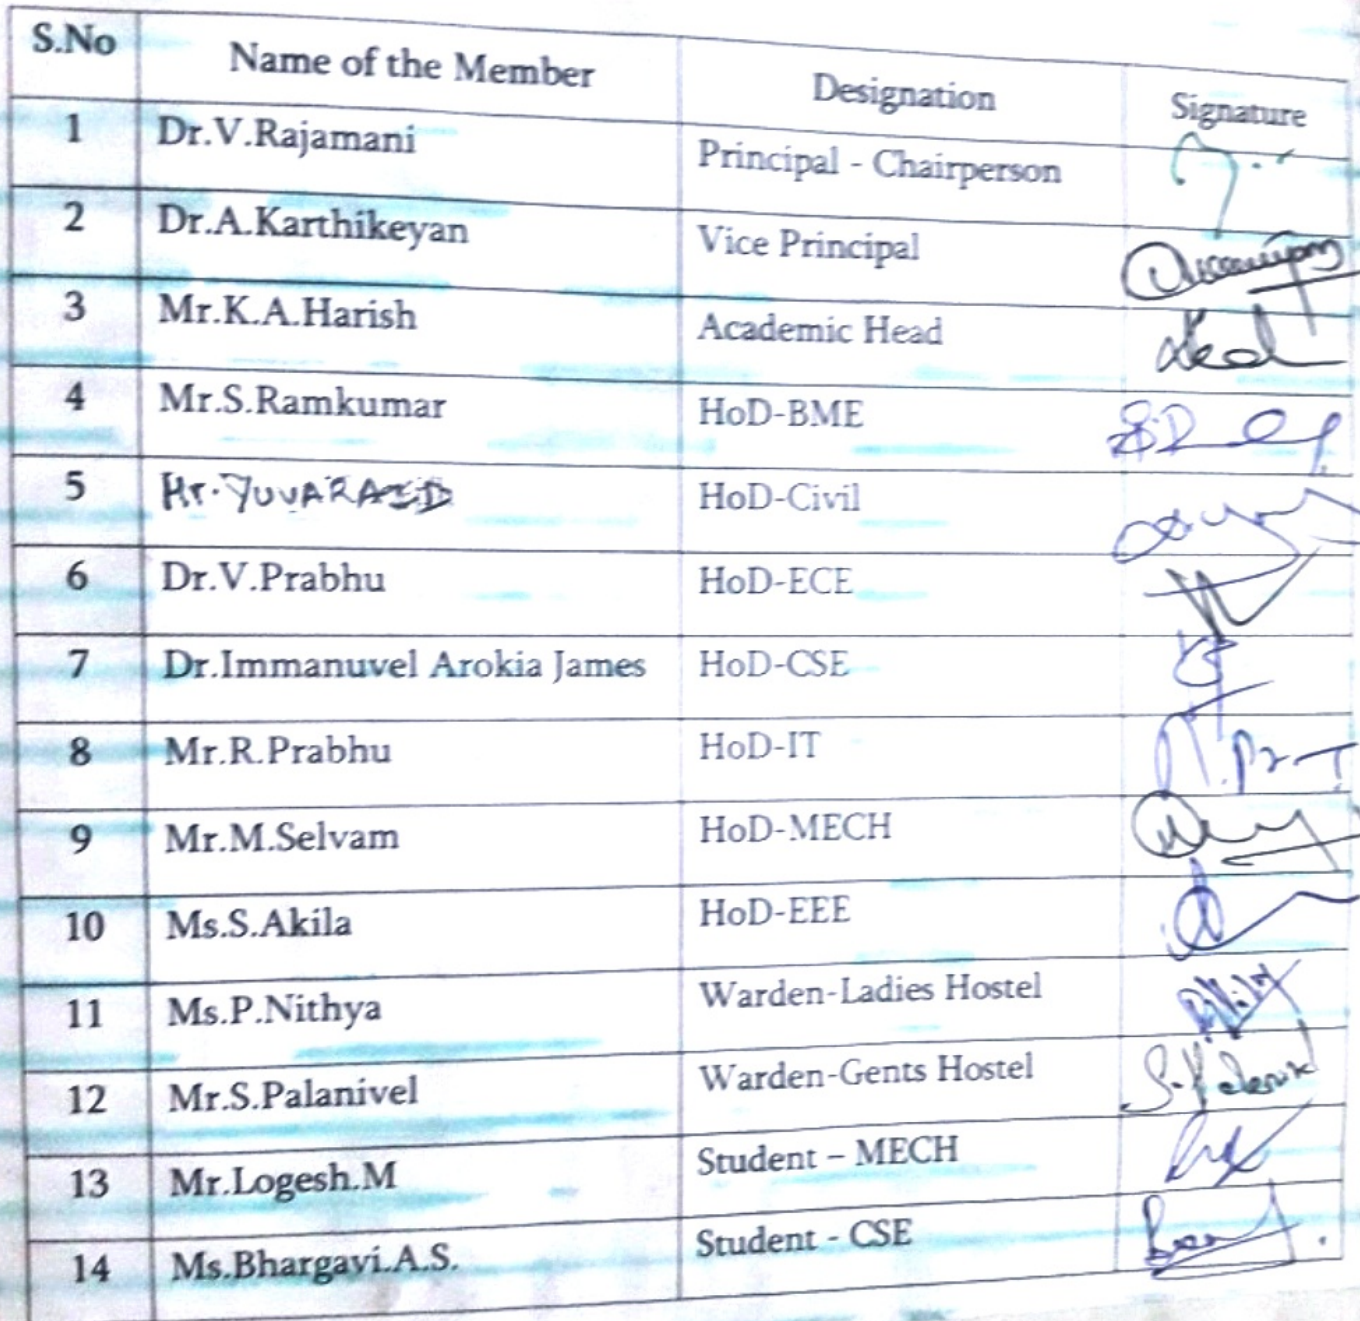 S.No Name of the Member Designation Signature
1 Dr.V.Rajamani Principal - Chairperson
2 Dr.A.Karthikeyan Vice Principal
3 Mr.K.A.Harish Academic Head
4 Mr.S.Ramkumar HoD-BME
5 Mr. HoD-Civil
6 Dr.V.Prabhu HoD-ECE
7 Dr.Immanuvel Arokia James HoD-CSE
8 Mr.R.Prabhu HoD-IT
9 Mr.M.Selvam HoD-MECH
10 Ms.S.Akila HoD-EEE
11 Ms.P.Nithya Warden-Ladies Hostel
12 Mr.S.Palanivel Warden-Gents Hostel
13 Mr.Logesh.M Student – MECH
14 Ms.Bhargavi.A.S. Student - CSE